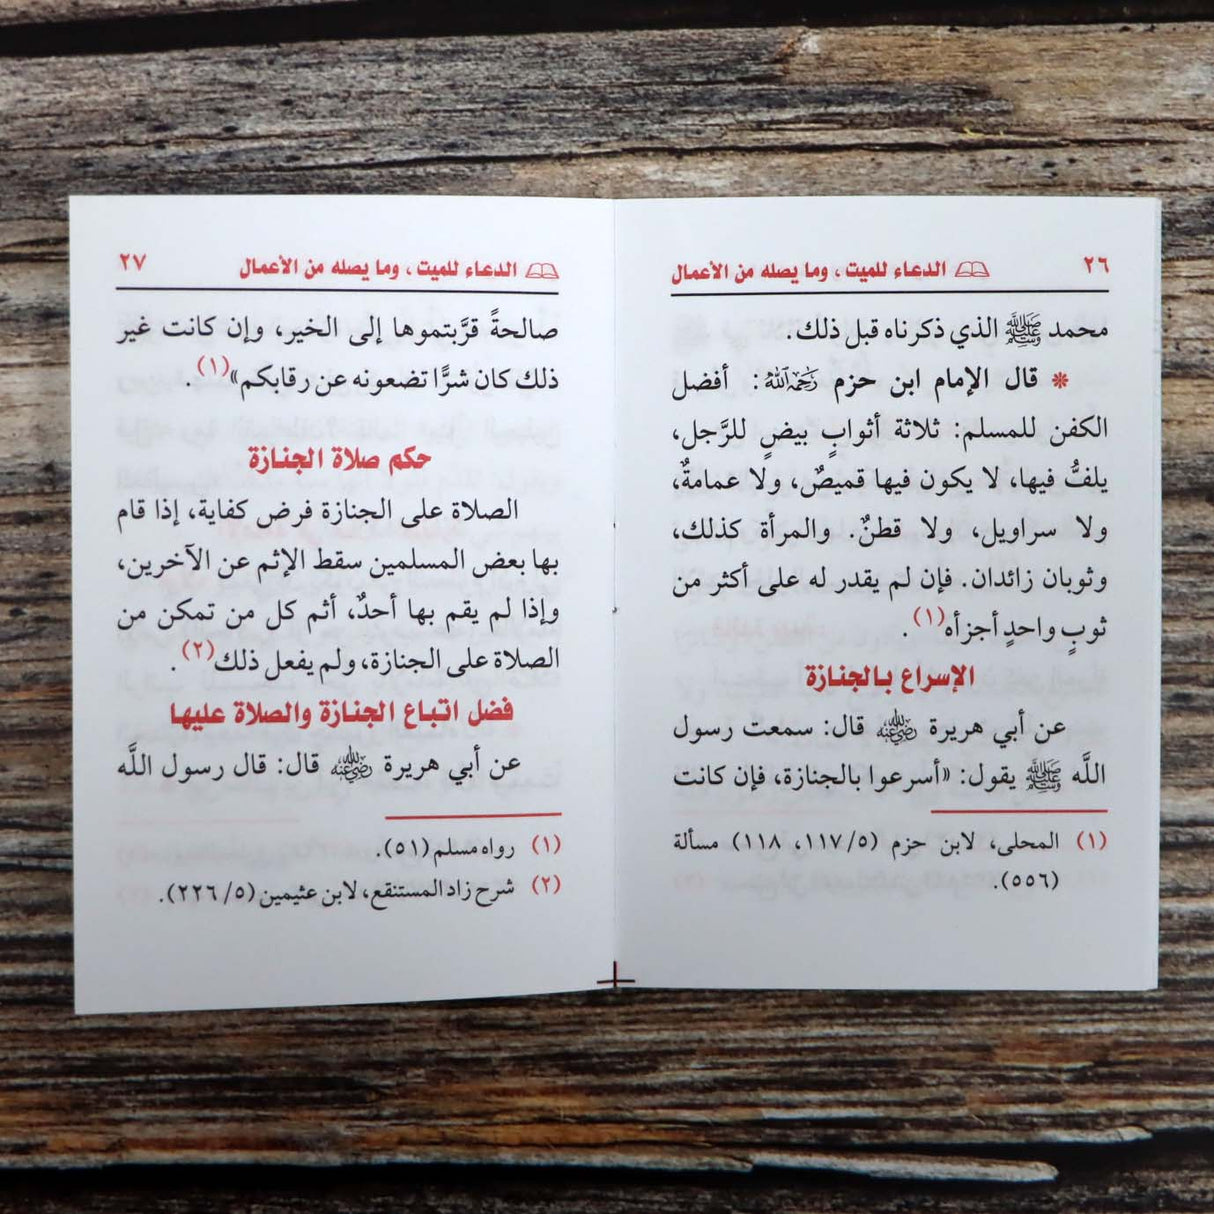 الدعاء للميت، وما يصله من الأعمال ٢٦
محمد ﷺ الذي ذكرناه قبل ذلك.
* قال الإمام ابن حزم رَحِمَهُ اللَّهُ: أفضل
الكفن للمسلم: ثلاثة أثوابٍ بيضٍ للرَّجل،
يلفُّ فيها، لا يكون فيها قميصٌ، ولا عمامةٌ،
ولا سراويل، ولا قطنٌ. والمرأة كذلك،
وثوبان زائدان. فإن لم يقدر له على أكثر من
ثوبٍ واحدٍ أجزأه(١).
الإسراع بالجنازة
عن أبي هريرة رضي الله عنه قال: سمعت رسول
اللَّه ﷺ يقول: «أسرعوا بالجنازة، فإن كانت
(١) المحلى، لابن حزم (٥/ ١١٧، ١١٨) مسألة
(٥٥٦).
الدعاء للميت، وما يصله من الأعمال ٢٧
صالحةً قرَّبتموها إلى الخير، وإن كانت غير
ذلك كان شرًّا تضعونه عن رقابكم»(١).
حكم صلاة الجنازة
الصلاة على الجنازة فرض كفاية، إذا قام
بها بعض المسلمين سقط الإثم عن الآخرين،
وإذا لم يقم بها أحدٌ، أثم كل من تمكن من
الصلاة على الجنازة، ولم يفعل ذلك(٢).
فضل اتباع الجنازة والصلاة عليها
عن أبي هريرة رضي الله عنه قال: قال رسول اللَّه
(١) رواه مسلم (٥١).
(٢) شرح زاد المستنقع، لابن عثيمين (٥/ ٢٢٦).